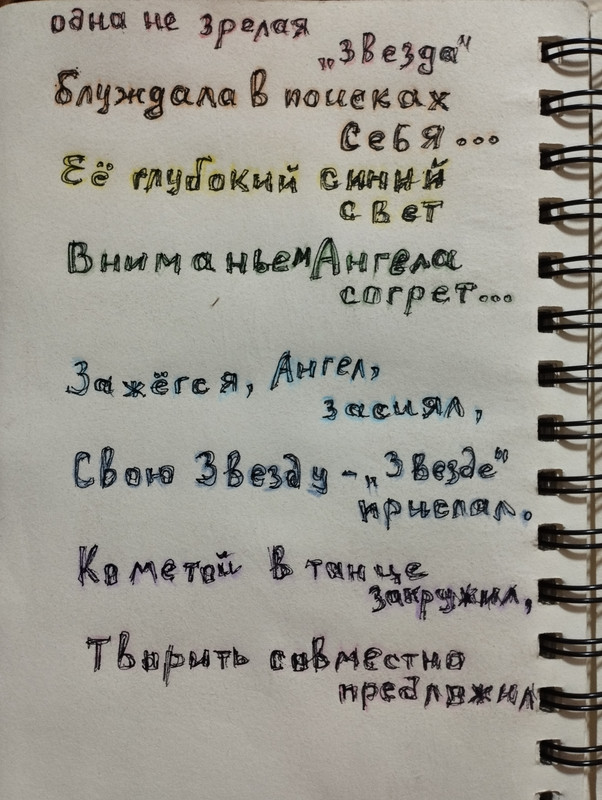 одна не зрелая
„Звезда"
Блуждала в поисках
себя...
Её глубокий синий
свет
Вниманьем Ангела
согрет...
Зажёгся, Ангел,
засиял,
Свою Звезду - „Звезде"
прислал.
Кометой в танце
закружил,
Творить совместно
предложил